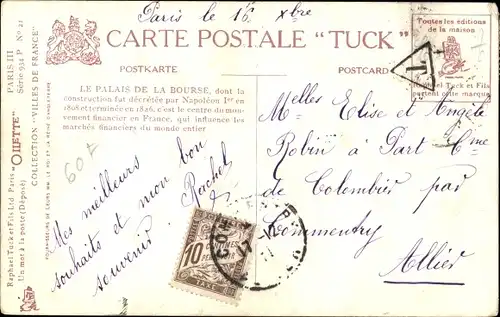 Paris le 16 Xbre
CARTE POSTALE "TUCK"
POSTKARTE
POSTCARD
Toutes les éditions
de la maison
Raphael Tuck et Fils
portent cette marque
T
LE PALAIS DE LA BOURSE, dont la
construction fut décrétée par Napoléon Ier en
1808 et terminée en 1826, c'est le centre du mou-
vement financier en France, qui influence les
marchés financiers du monde entier
60 F
Mes meilleurs
souhaits et mon bon
souvenir
Rachel
Melles Elise et Angèle
Robin à Part Cme
de Colombier par
Commentry
Allier
10
CENTIMES
TAXE
PARIS III
Série 934 P No 21
COLLECTION "VILLES DE FRANCE"
"OILETTE"
Raphael Tuck et Fils Ltd. Paris
Un mot à la poste (Déposé)